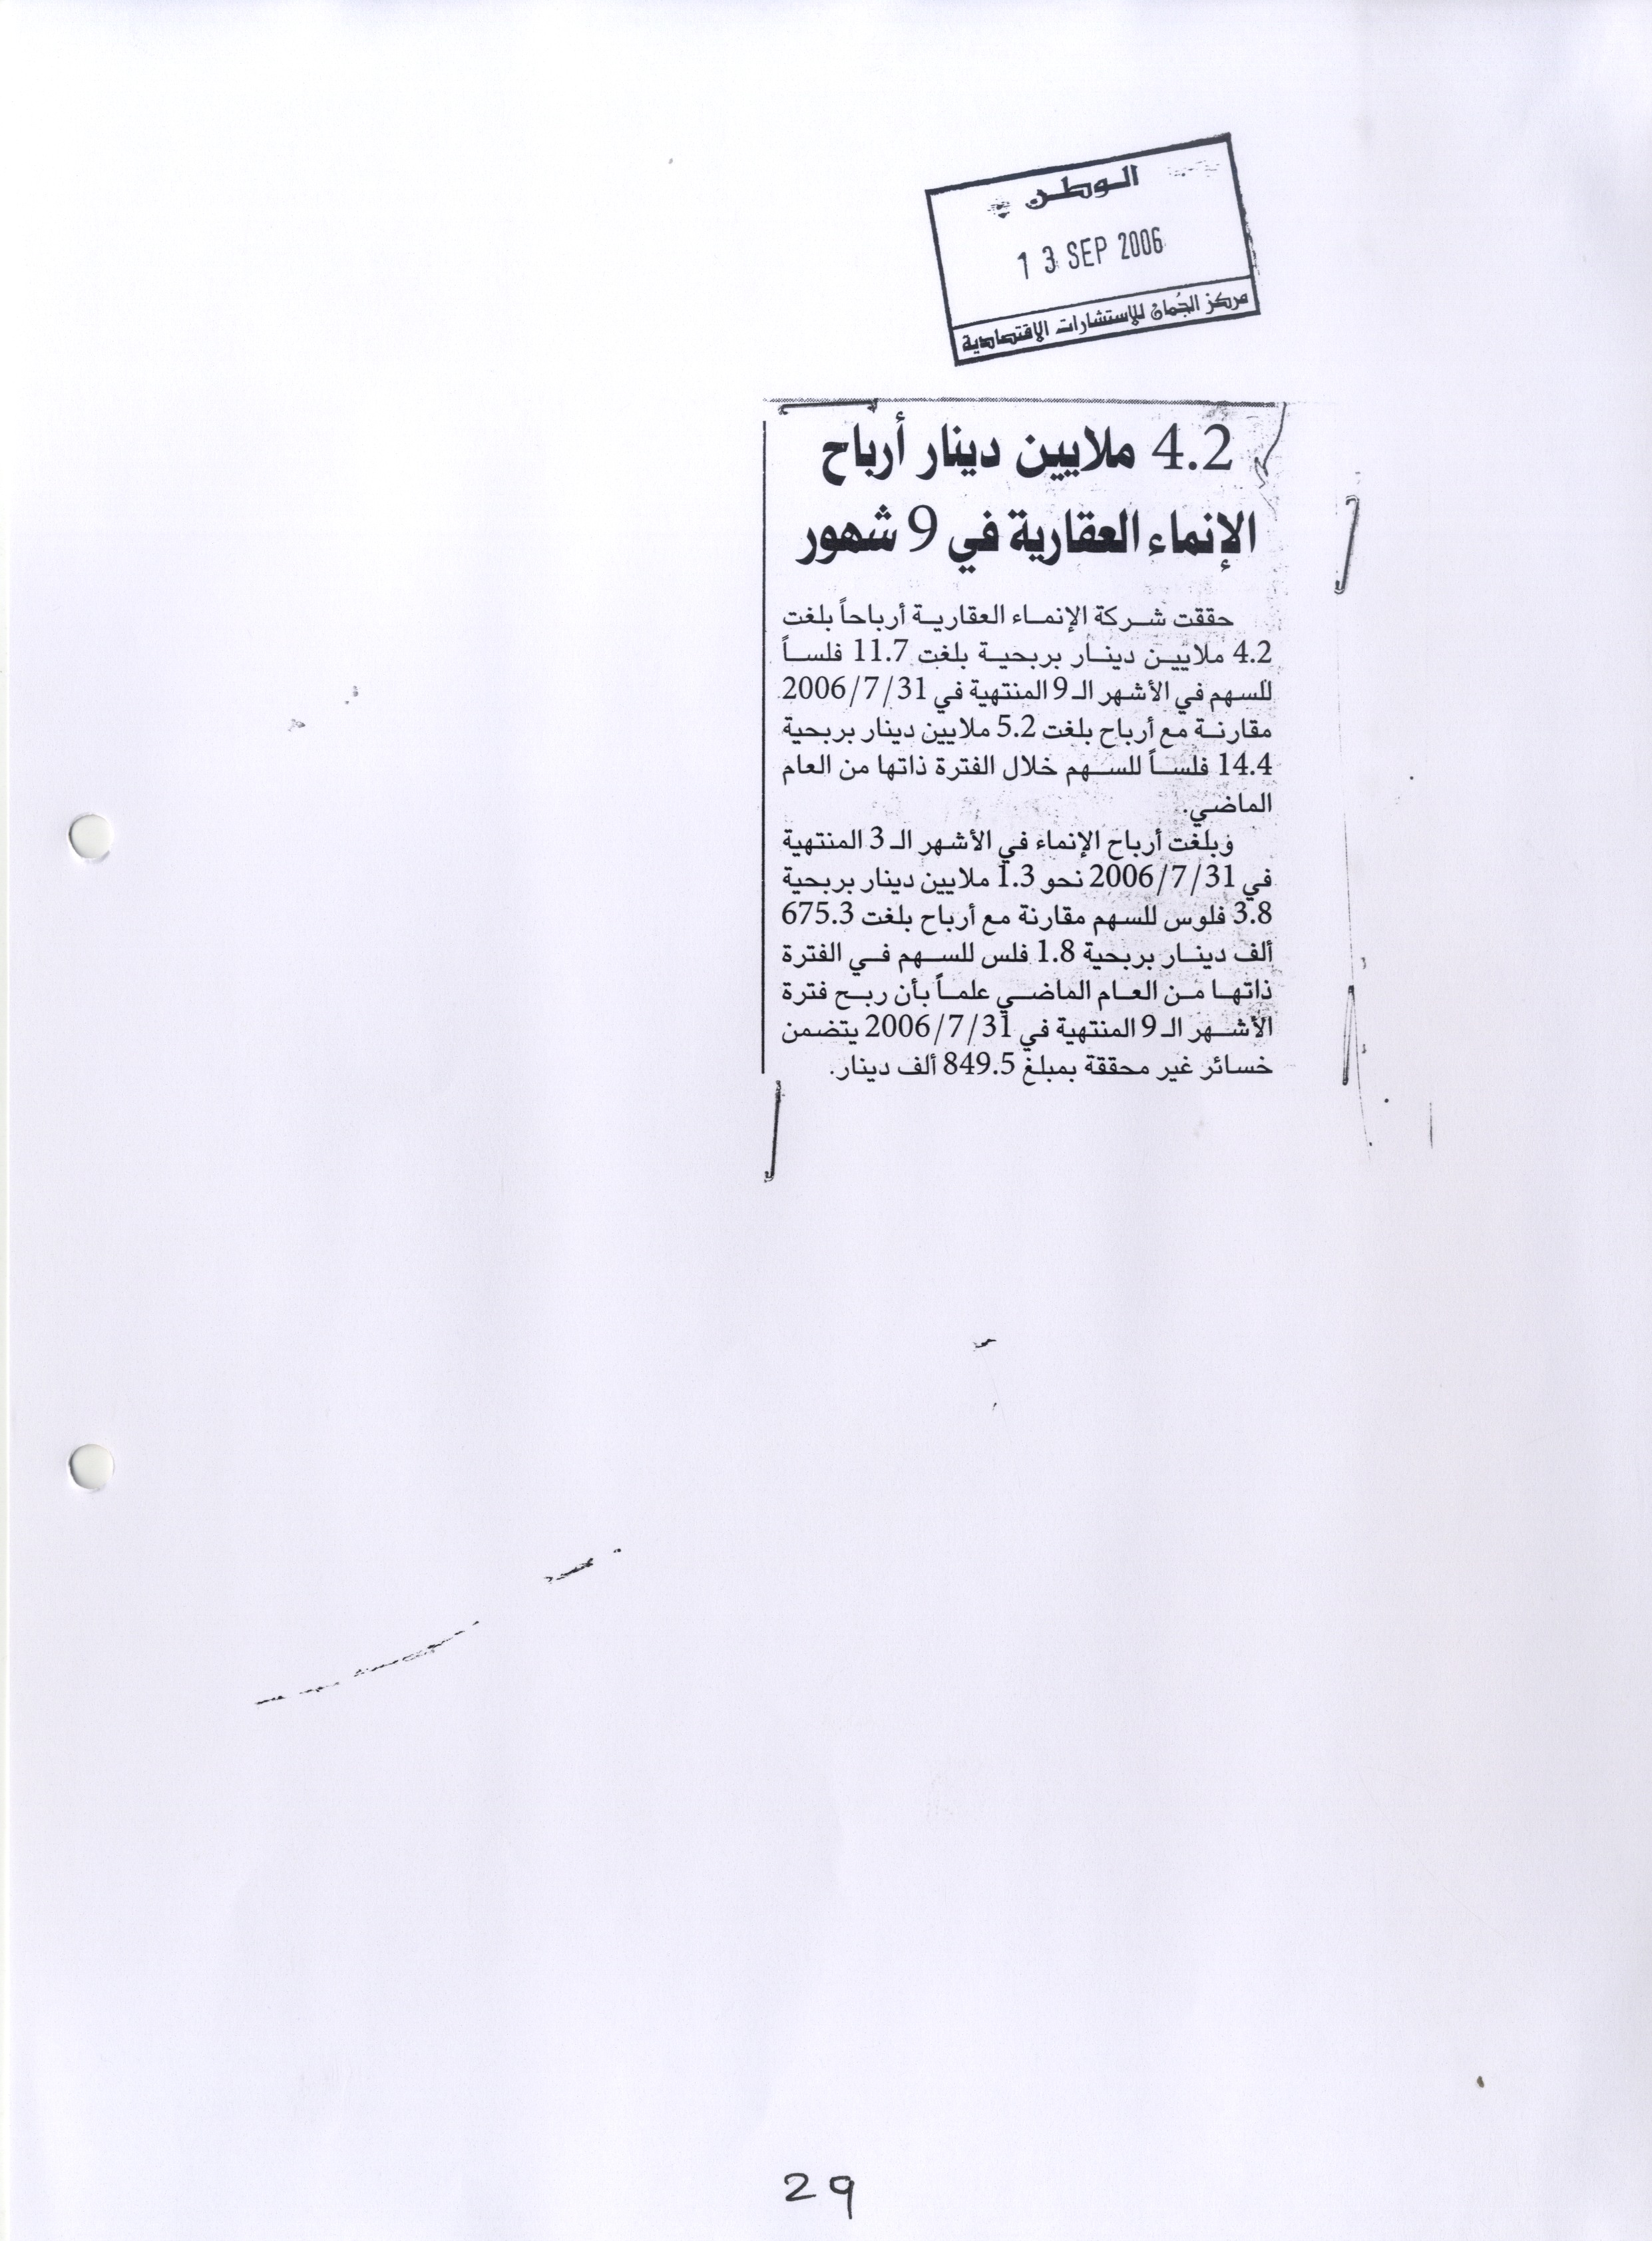 الوطن
13 SEP 2006
مركز الجُمان للإستشارات الإقتصادية
4.2 ملايين دينار أرباح
الإنماء العقارية في 9 شهور
حققت شركة الإنماء العقارية أرباحاً بلغت
4.2 ملايين دينار بربحية بلغت 11.7 فلساً
للسهم في الأشهر الـ 9 المنتهية في 2006/7/31
مقارنة مع أرباح بلغت 5.2 ملايين دينار بربحية
14.4 فلساً للسهم خلال الفترة ذاتها من العام
الماضي.
وبلغت أرباح الإنماء في الأشهر الـ 3 المنتهية
في 2006/7/31 نحو 1.3 ملايين دينار بربحية
3.8 فلوس للسهم مقارنة مع أرباح بلغت 675.3
ألف دينار بربحية 1.8 فلس للسهم في الفترة
ذاتها من العام الماضي علماً بأن ربح فترة
الأشهر الـ 9 المنتهية في 2006/7/31 يتضمن
خسائر غير محققة بمبلغ 849.5 ألف دينار.
29